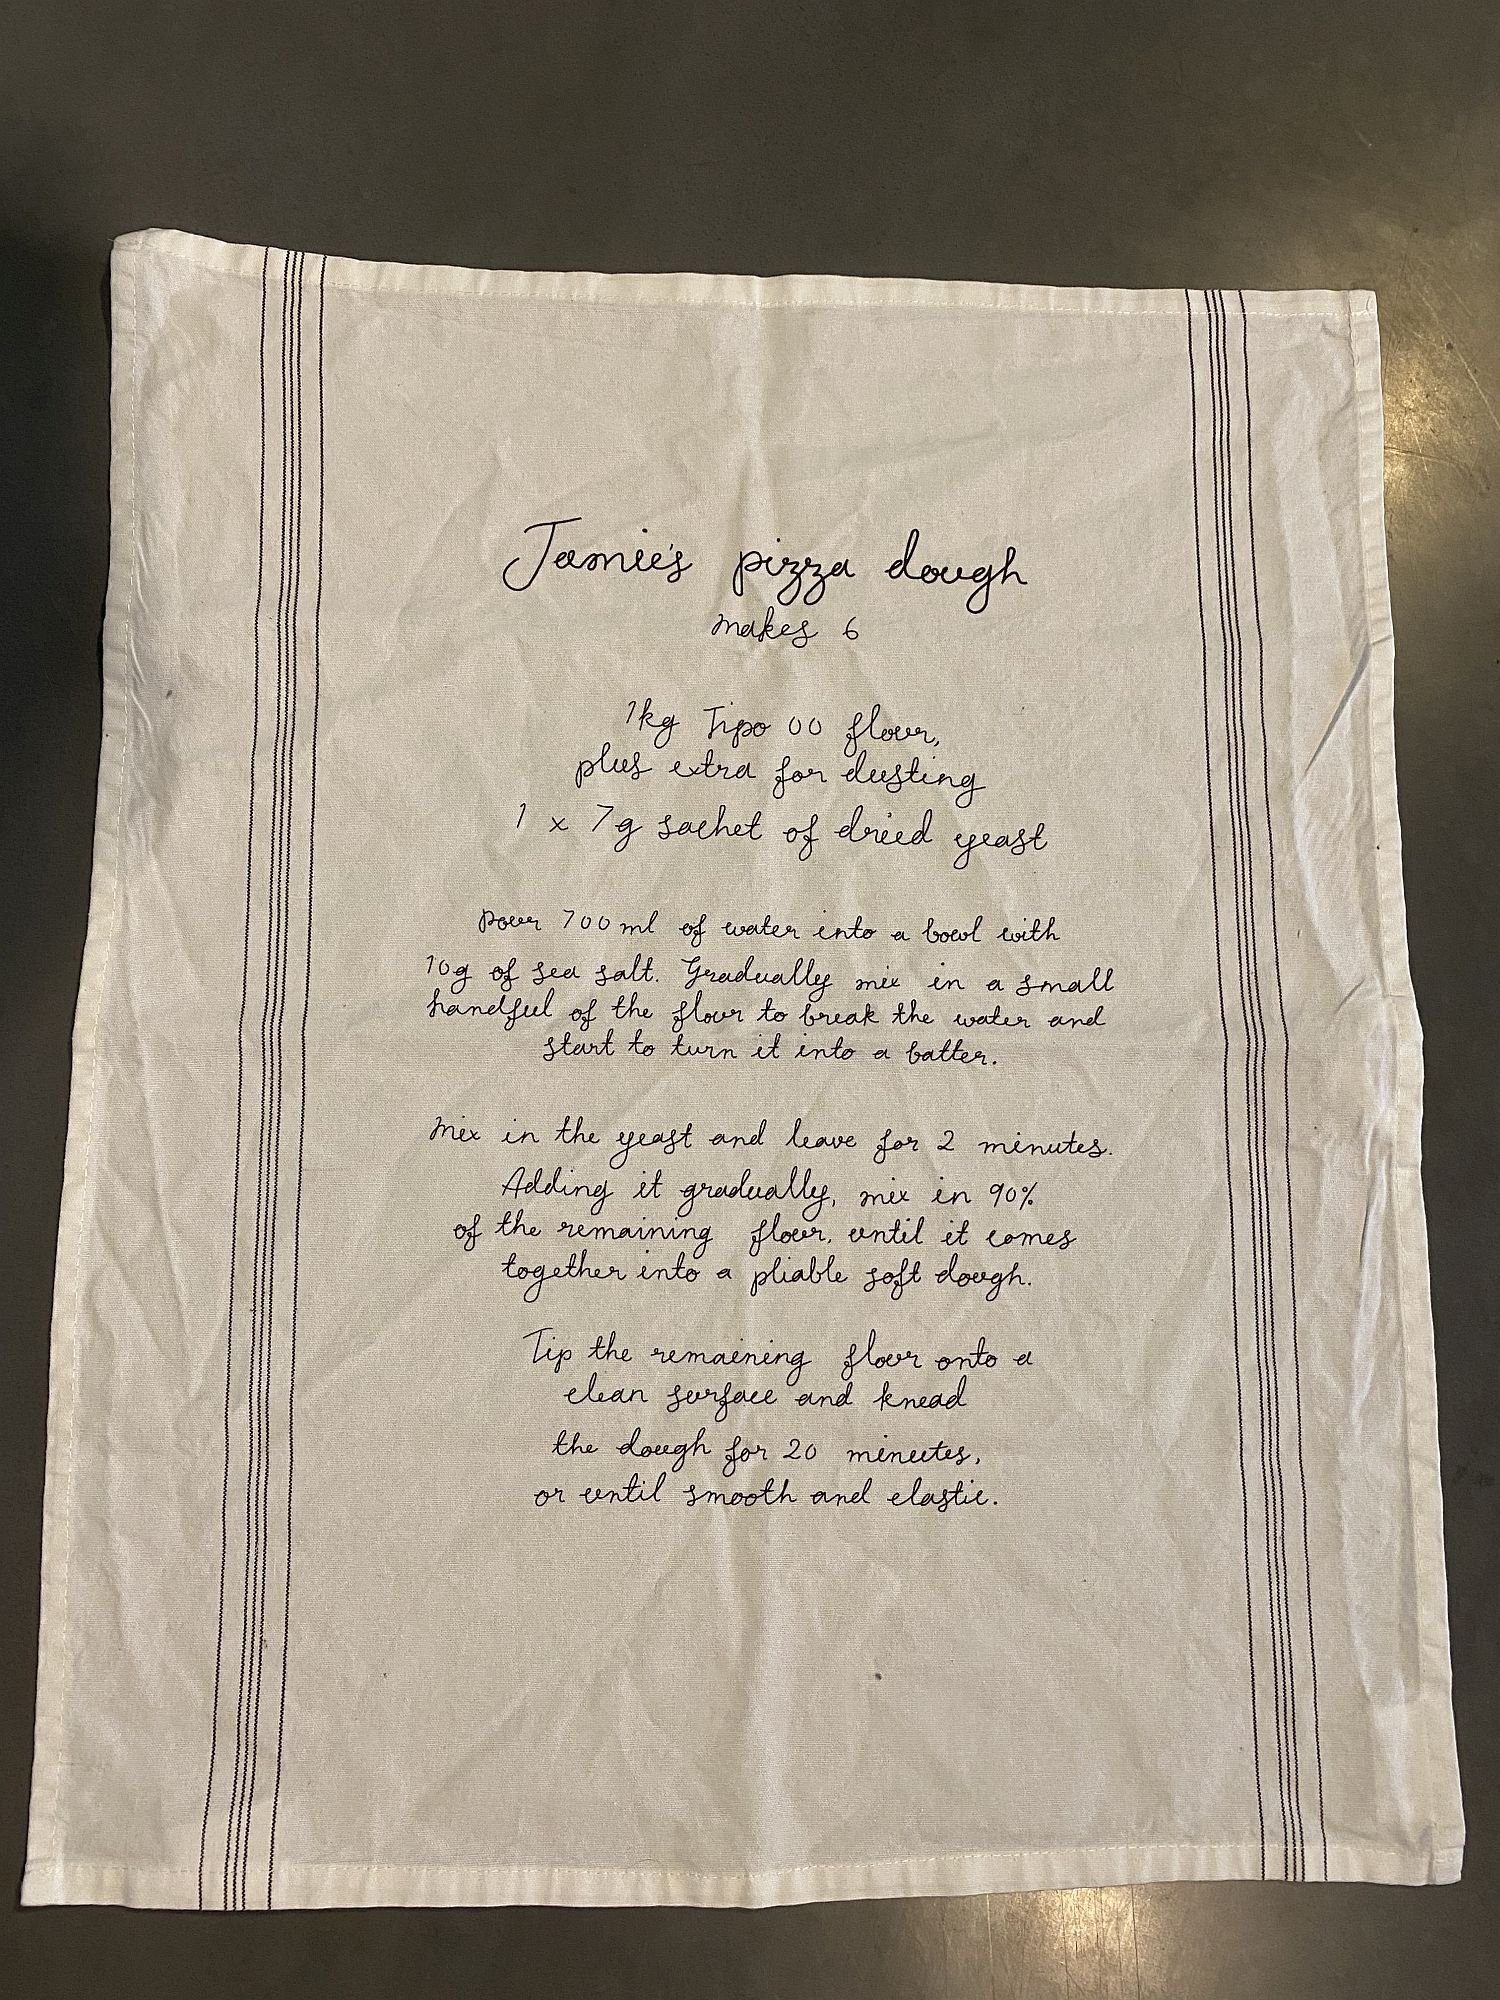 Jamie's pizza dough
makes 6
1kg Tipo 00 flour,
plus extra for dusting
1 x 7g sachet of dried yeast
Pour 700ml of water into a bowl with
10g of sea salt. Gradually mix in a small
handful of the flour to break the water and
start to turn it into a batter.
Mix in the yeast and leave for 2 minutes.
Adding it gradually, mix in 90%
of the remaining flour, until it comes
together into a pliable soft dough.
Tip the remaining flour onto a
clean surface and knead
the dough for 20 minutes,
or until smooth and elastic.